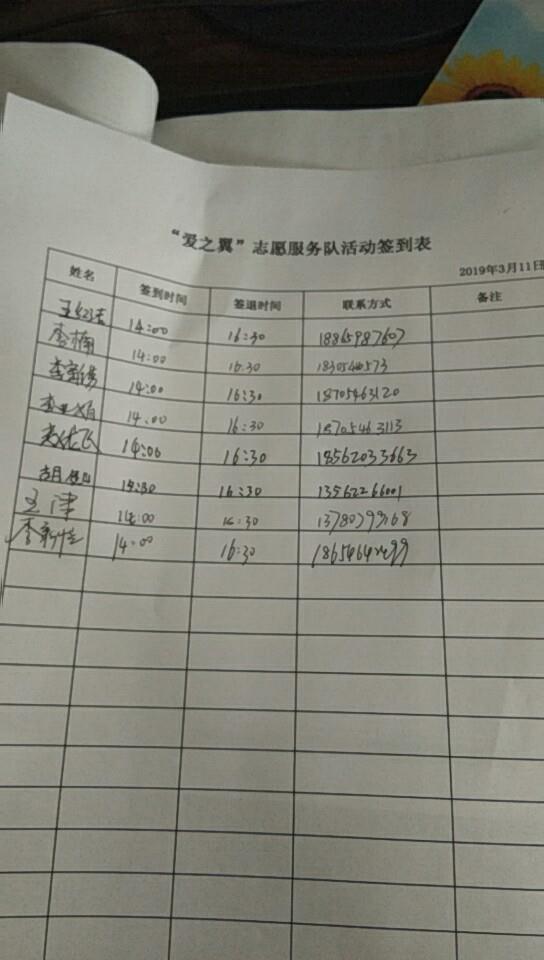 “爱之翼”志愿服务队活动签到表
2019年3月11日
姓名 签到时间 签退时间 联系方式 备注
14:00 16:30 18865987607
李楠 14:00 16:30
14:00 16:30 18705463120
14:00 16:30 18705463113
14:00 16:30 18562033663
16:30 13562266001
王津 14:00 16:30
李新佳 14:00 16:30